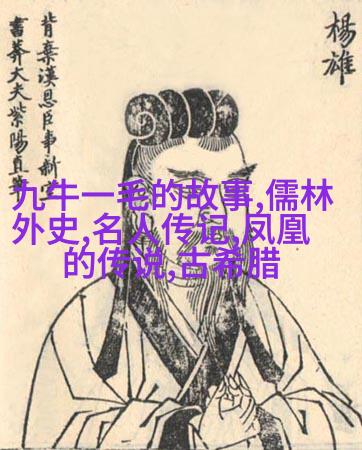 楊雄
背棄漢恩臣事新室
書莽大夫紫陽直筆
九牛一毛的故事,儒林
外史,名人传记,凤凰
的传说,古希腊